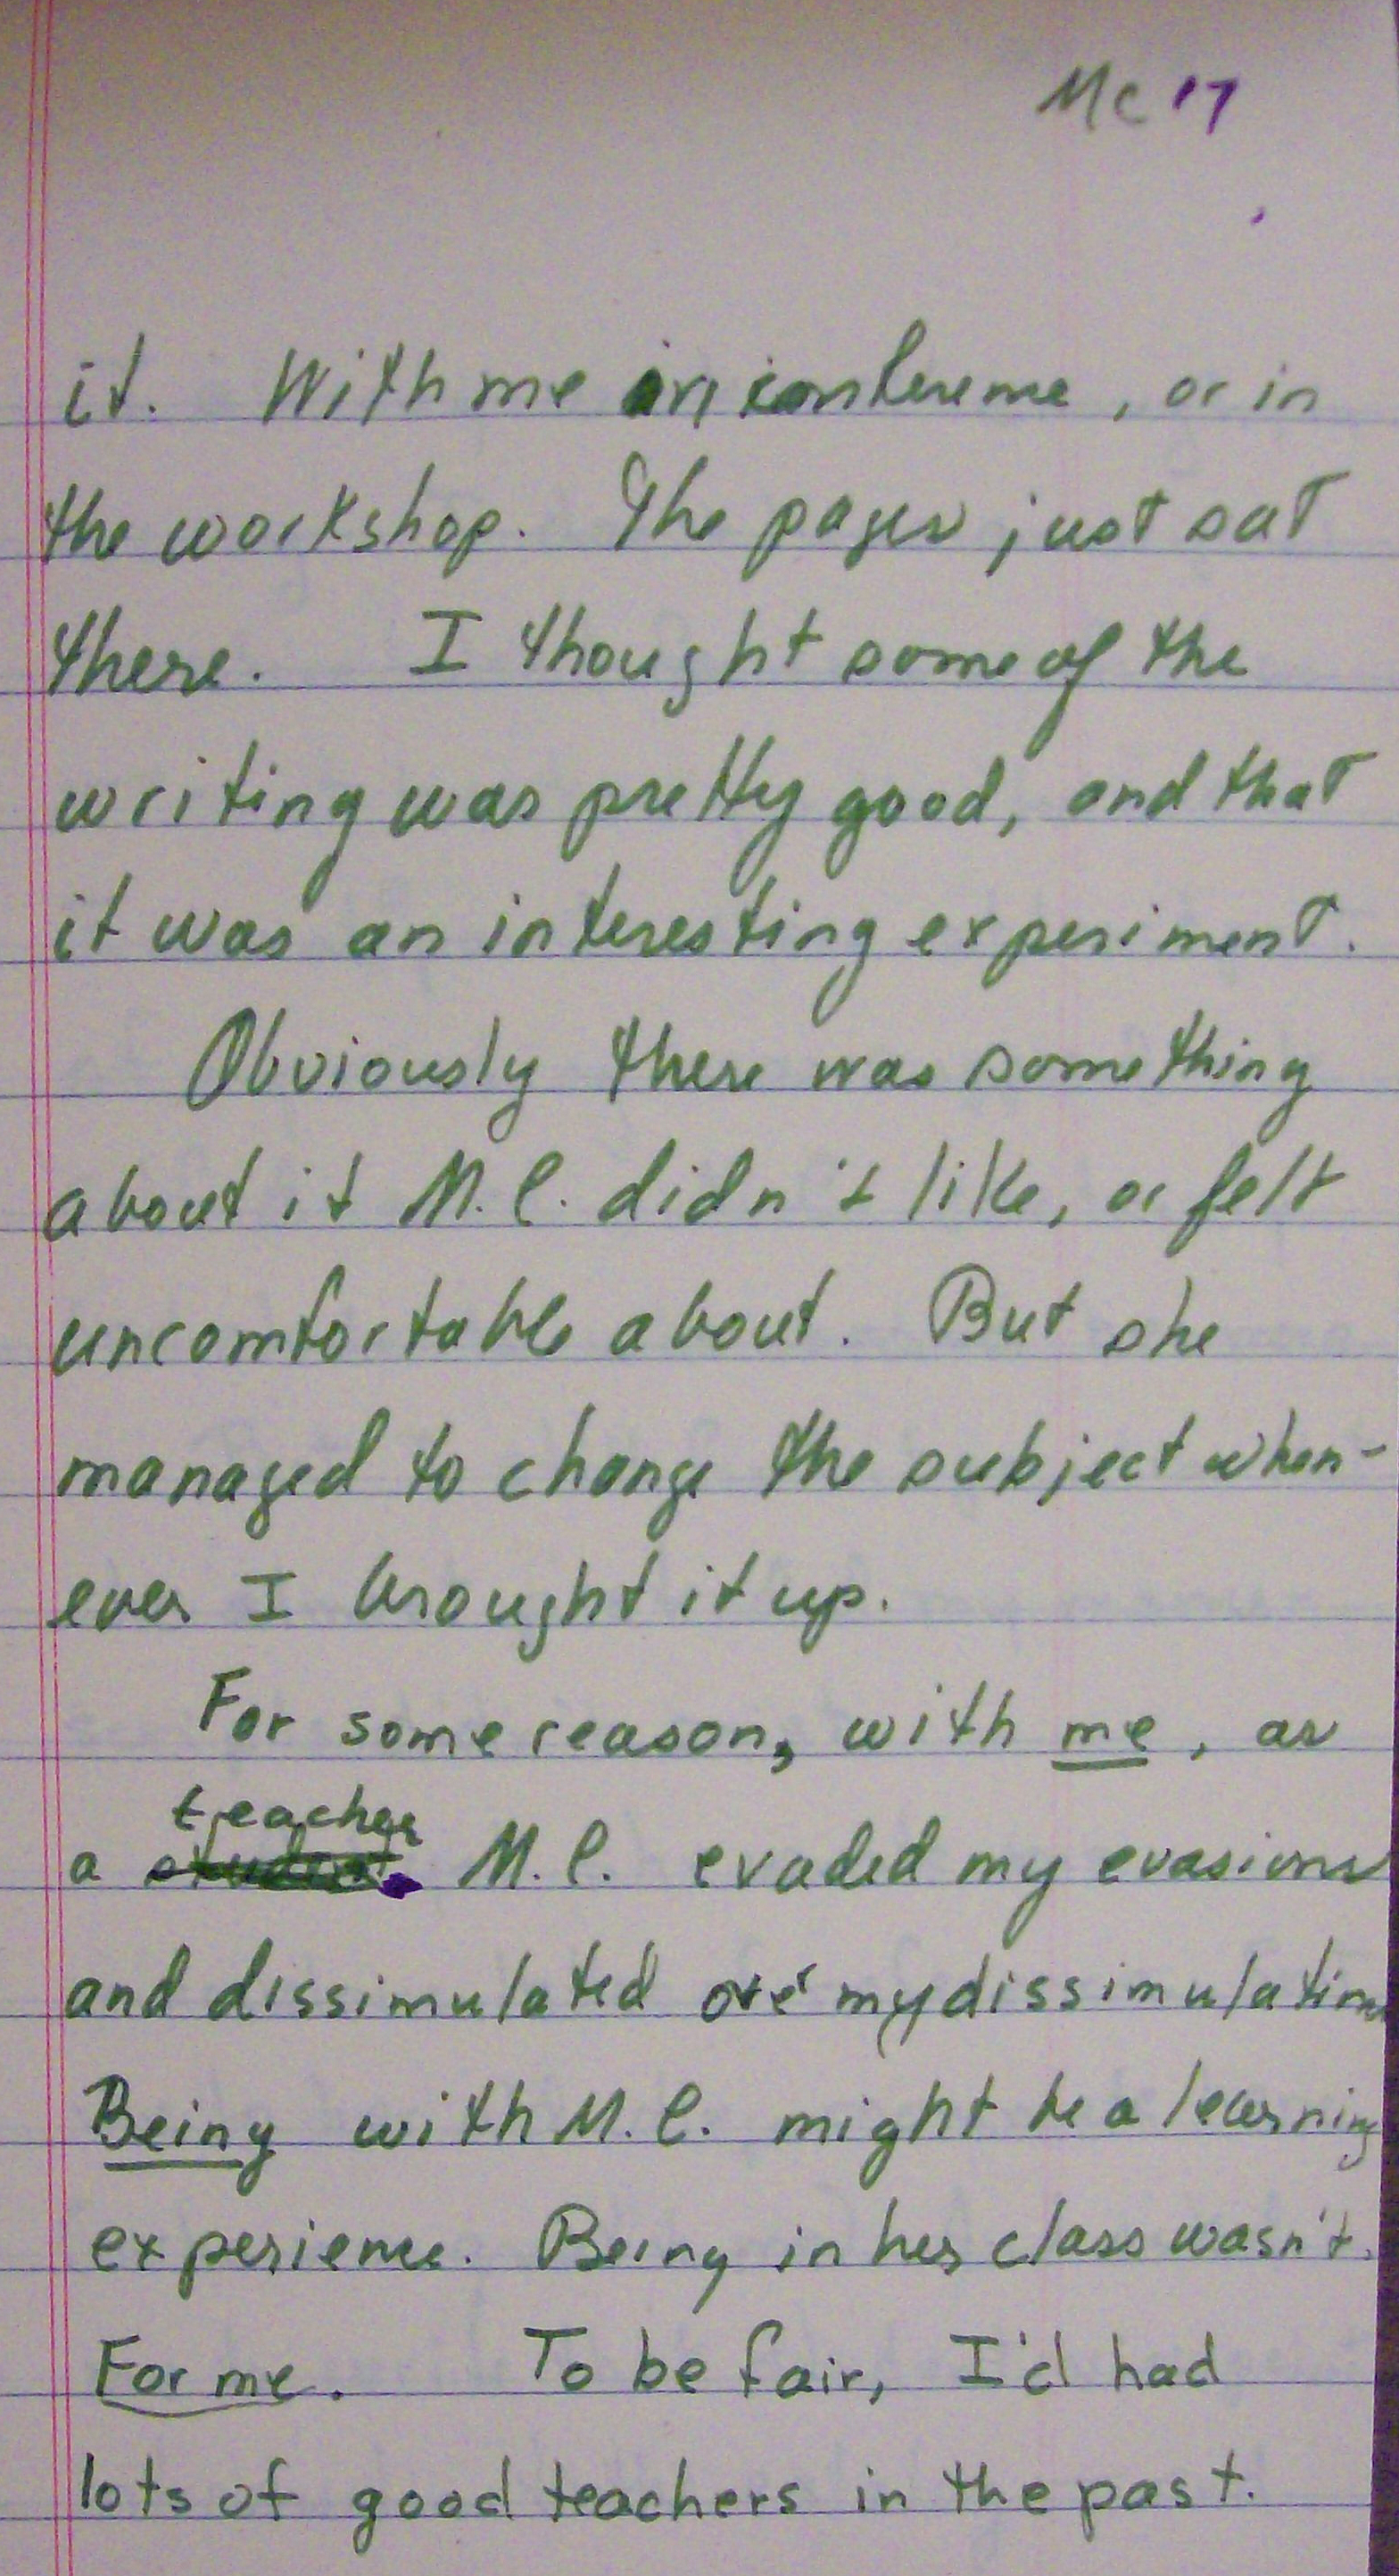 Mc 17
it. With me in conference, or in
the workshop. The pages just sat
there. I thought some of the
writing was pretty good, and that
it was an interesting experiment.
Obviously there was something
about it M.C. didn't like, or felt
uncomfortable about. But she
managed to change the subject when-
ever I brought it up.
For some reason, with me, as
teacher
a student M.C. evaded my evasions
and dissimulated over my dissimulations
Being with M.C. might be a learning
experience. Being in her class wasn't.
For me. To be fair, I'd had
lots of good teachers in the past.